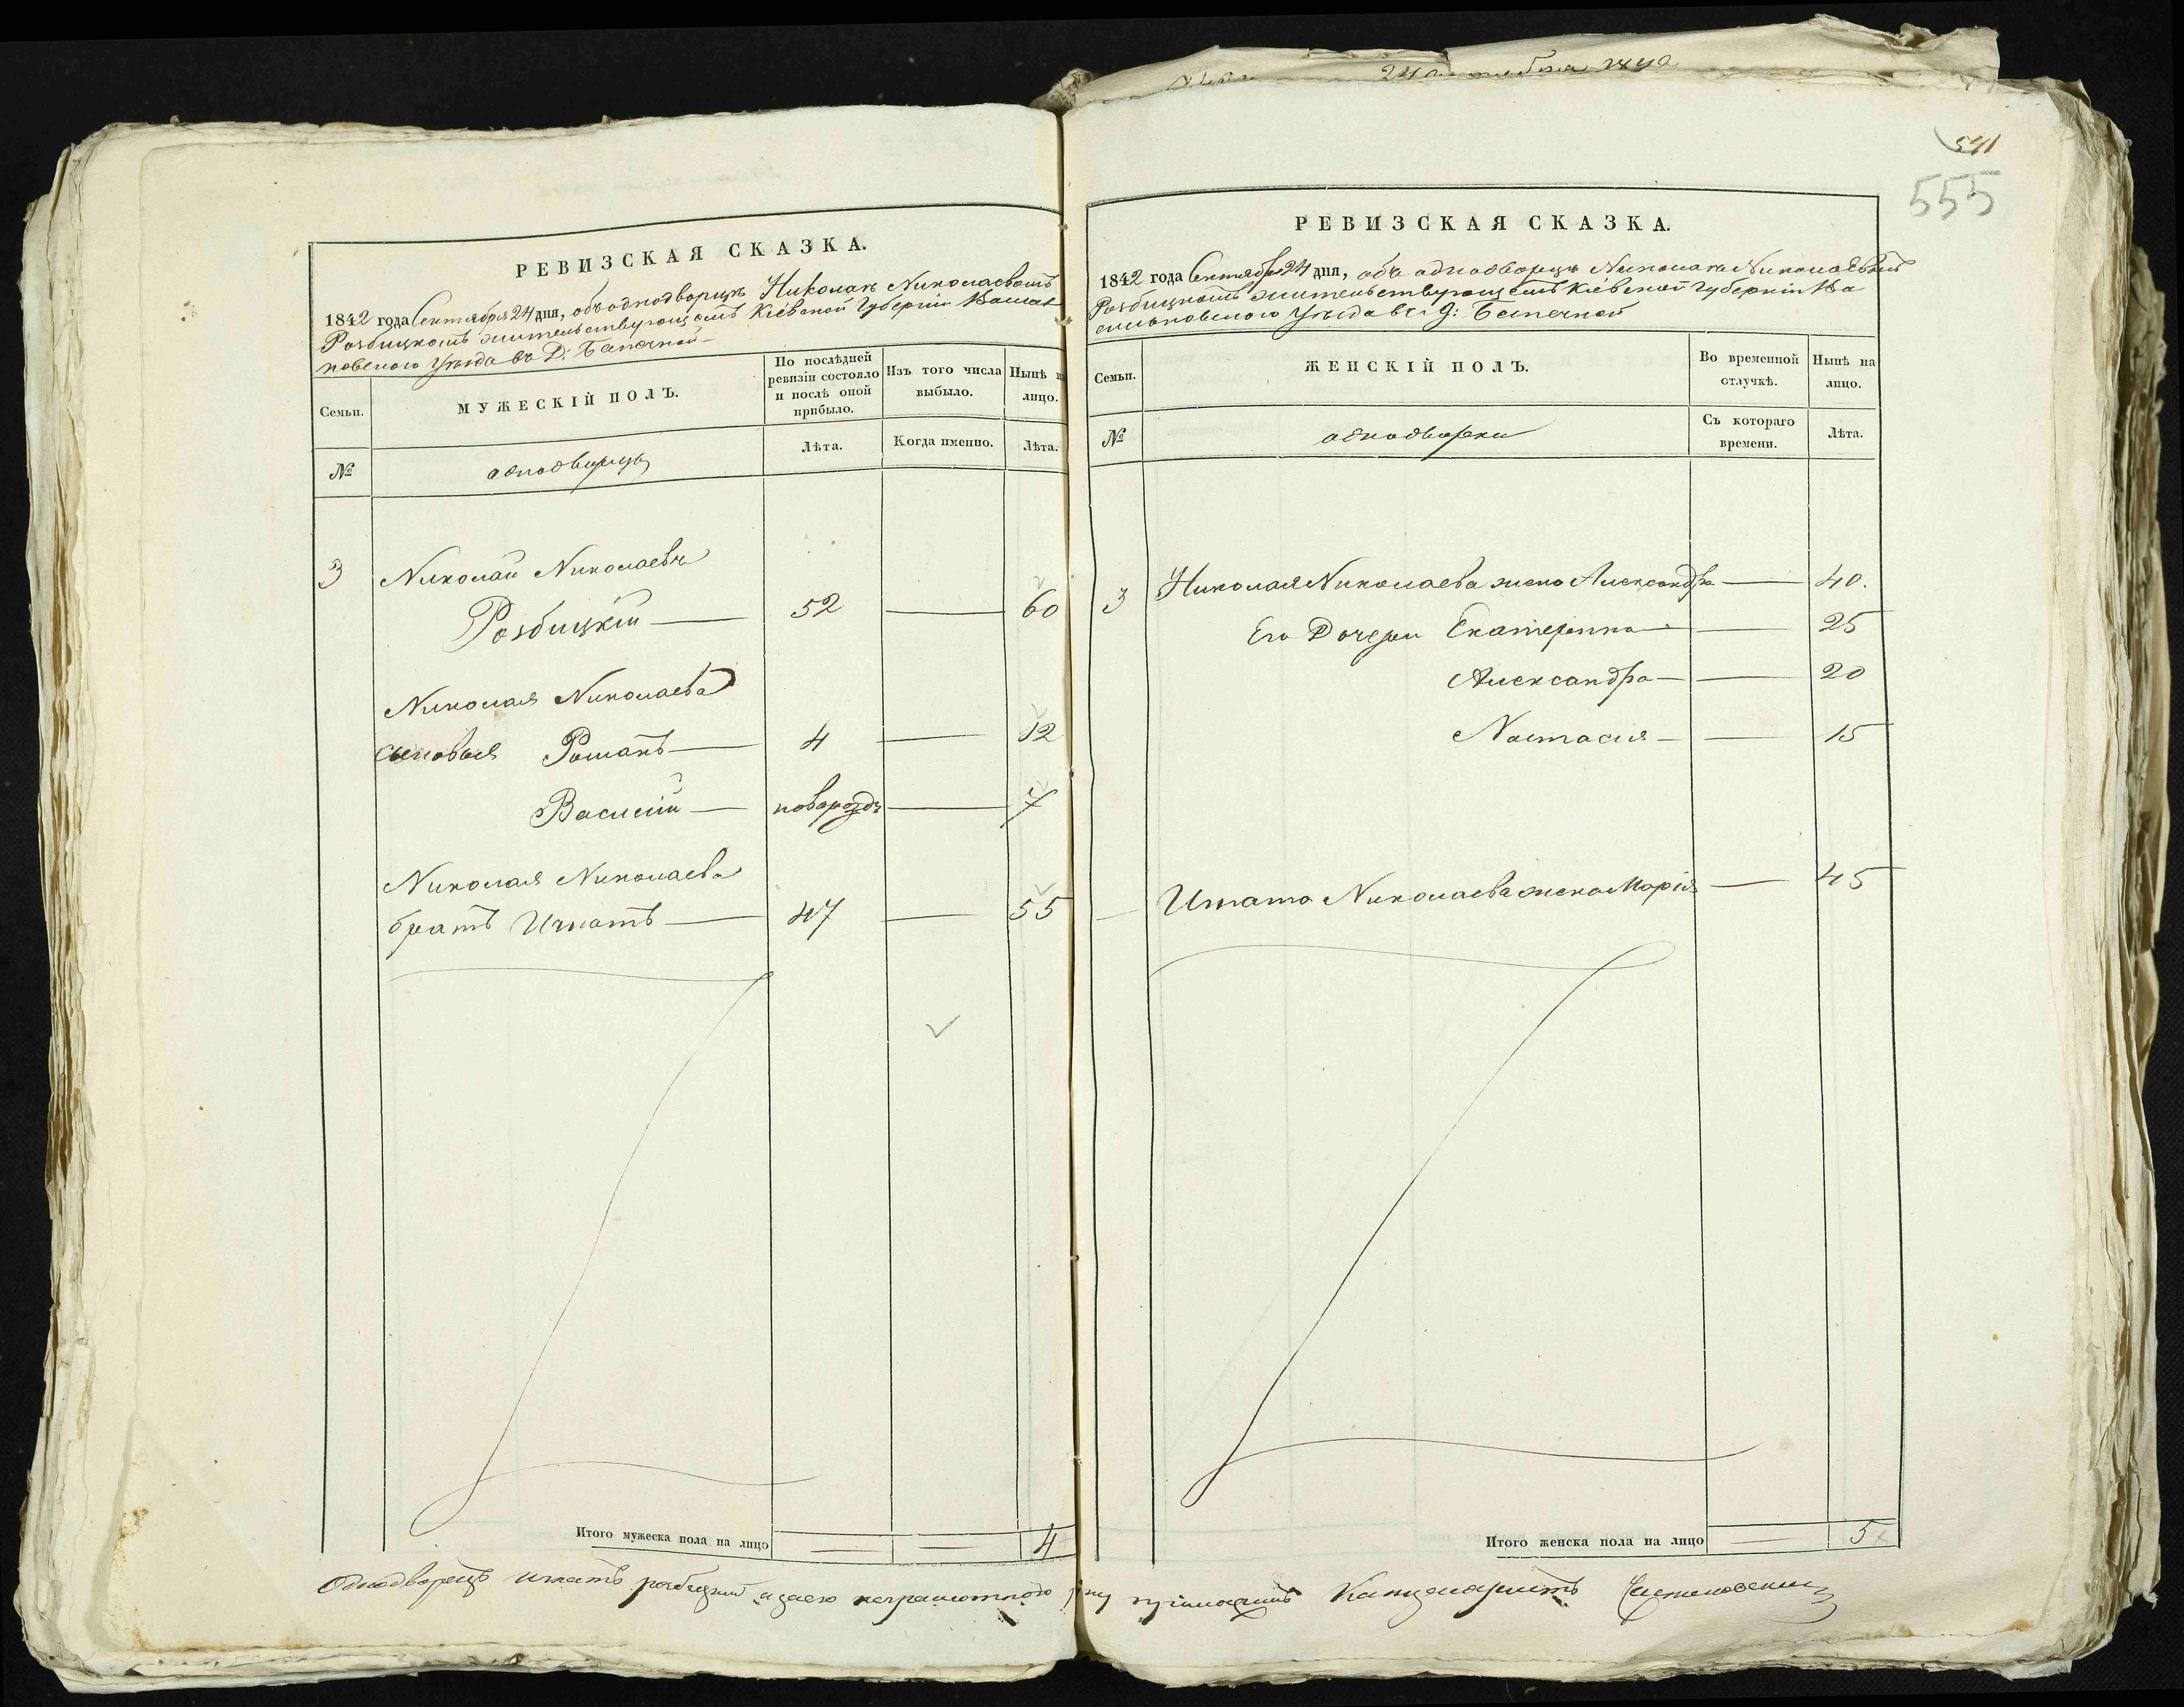 24 сентября 1842
541
555
РЕВИЗСКАЯ СКАЗКА.
1842 года Сентября 24 дня, объ однодворцѣ Николаѣ Николаевомъ
Розбицкомъ жительствующемъ Кіевской Губерніи Василь
ковского Уѣзда въ Д:
Семьи.
МУЖЕСКІЙ ПОЛЪ.
По послѣдней ревизіи состояло и послѣ оной прибыло.
Изъ того числа выбыло.
Нынѣ на лицо.
№
однодворцы
Лѣта.
Когда именно.
Лѣта.
3 Николай Николаевъ
Розбицкій — 52 — 60
Николая Николаева
сыновья Романъ — 4 — 12
Василій — новорожд — 7
Николая Николаева
братъ Игнатъ — 47 — 55
Итого мужеска пола на лицо — — 4
РЕВИЗСКАЯ СКАЗКА.
1842 года Сентября 24 дня, объ однодворцѣ Николаѣ Николаевомъ
Розбицкомъ жительствующемъ Кіевской губерніи Ва
сильковского Уѣзда въ Д:
Семьи.
ЖЕНСКІЙ ПОЛЪ.
Во временной отлучкѣ.
Нынѣ на лицо.
№
однодворки
Съ котораго времени.
Лѣта.
3 Николая Николаева жена Александра — 40.
Его Дочери Екатерина — — 25
Александра — — 20
Настасия — — 15
Игната Николаева жена Марія — 45
Итого женска пола на лицо — 5
Однодворецъ Игнатъ Розбицкий а за его неграмотного руку приложилъ Канцеляристъ